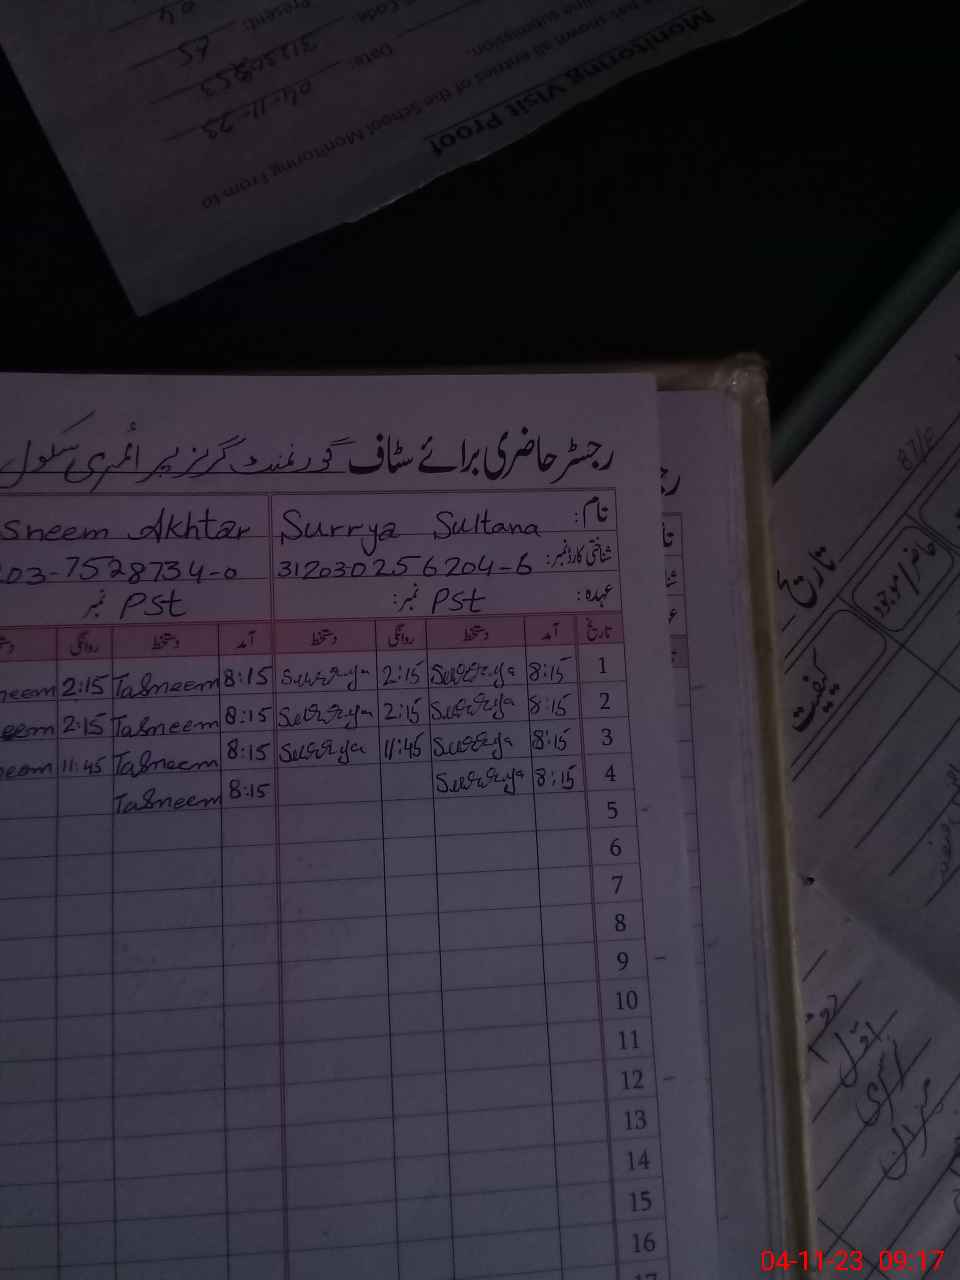 Monitoring Visit Proof
been shown all entries of the School Monitoring From to
Date: 04-11-23
Code: 31230853
Present: 65
رجسٹر حاضری برائے سٹاف گورنمنٹ گرلز پرائمری سکول
نام: Surrya Sultana sneem Akhtar
شناختی کارڈ نمبر: 312030256204-6 203-7528734-0
عہدہ: PSt نمبر: PSt نمبر
تاریخ آمد دستخط روانگی دستخط آمد دستخط روانگی
1 8:15 Surrya 2:15 Surrya 8:15 Tasneem 2:15 neem
2 8:15 Surrya 2:15 Surrya 8:15 Tasneem 2:15 eem
3 8:15 Surrya 11:45 Surrya 8:15 Tasneem 11:45 eem
4 8:15 Surrya 8:15 Tasneem
5
6
7
8
9
10
11
12
13
14
15
16
تاریخ
حاضر/موجود
کیفیت
04-11-23 09:17